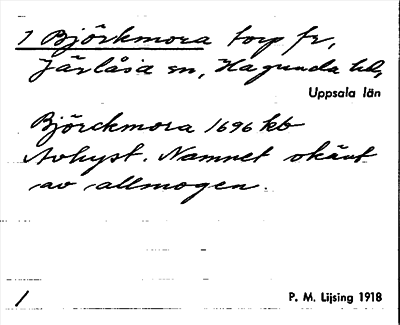 1 Björkmora torp fr,
Järlåsa sn, Hagunda hd,
Uppsala län
Björckmora 1696 kb
Avhyst. Namnet okänt
av allmogen.
1
P. M. Lijsing 1918